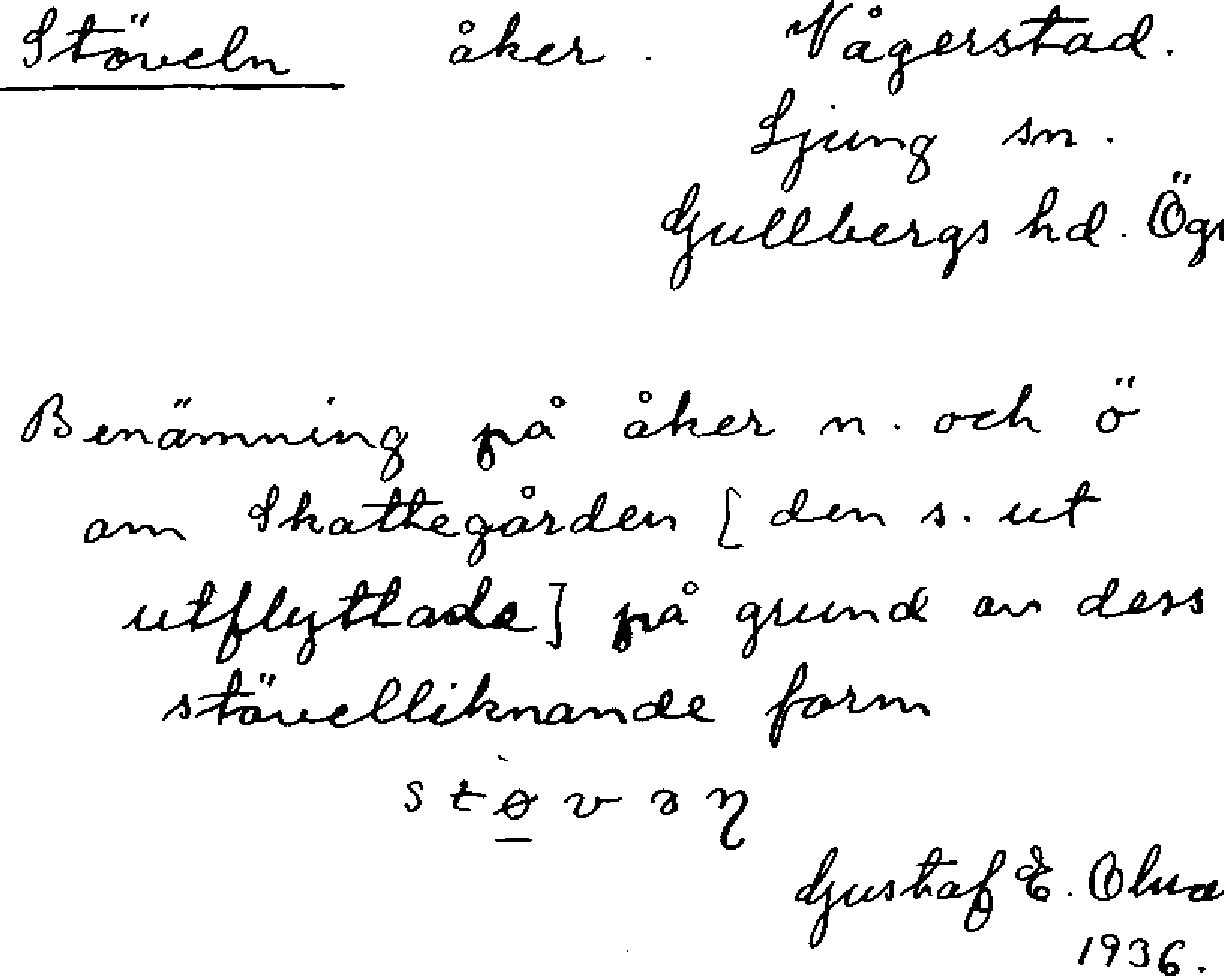 Stöveln åker. Vågerstad.
Ljung sn.
Gullbergs hd. Ögl
Benämning på åker n. och ö
om Skattegården [den s. ut
utflyttade] på grund av dess
stövelliknande form
støvəη
Gustaf E.
1936.